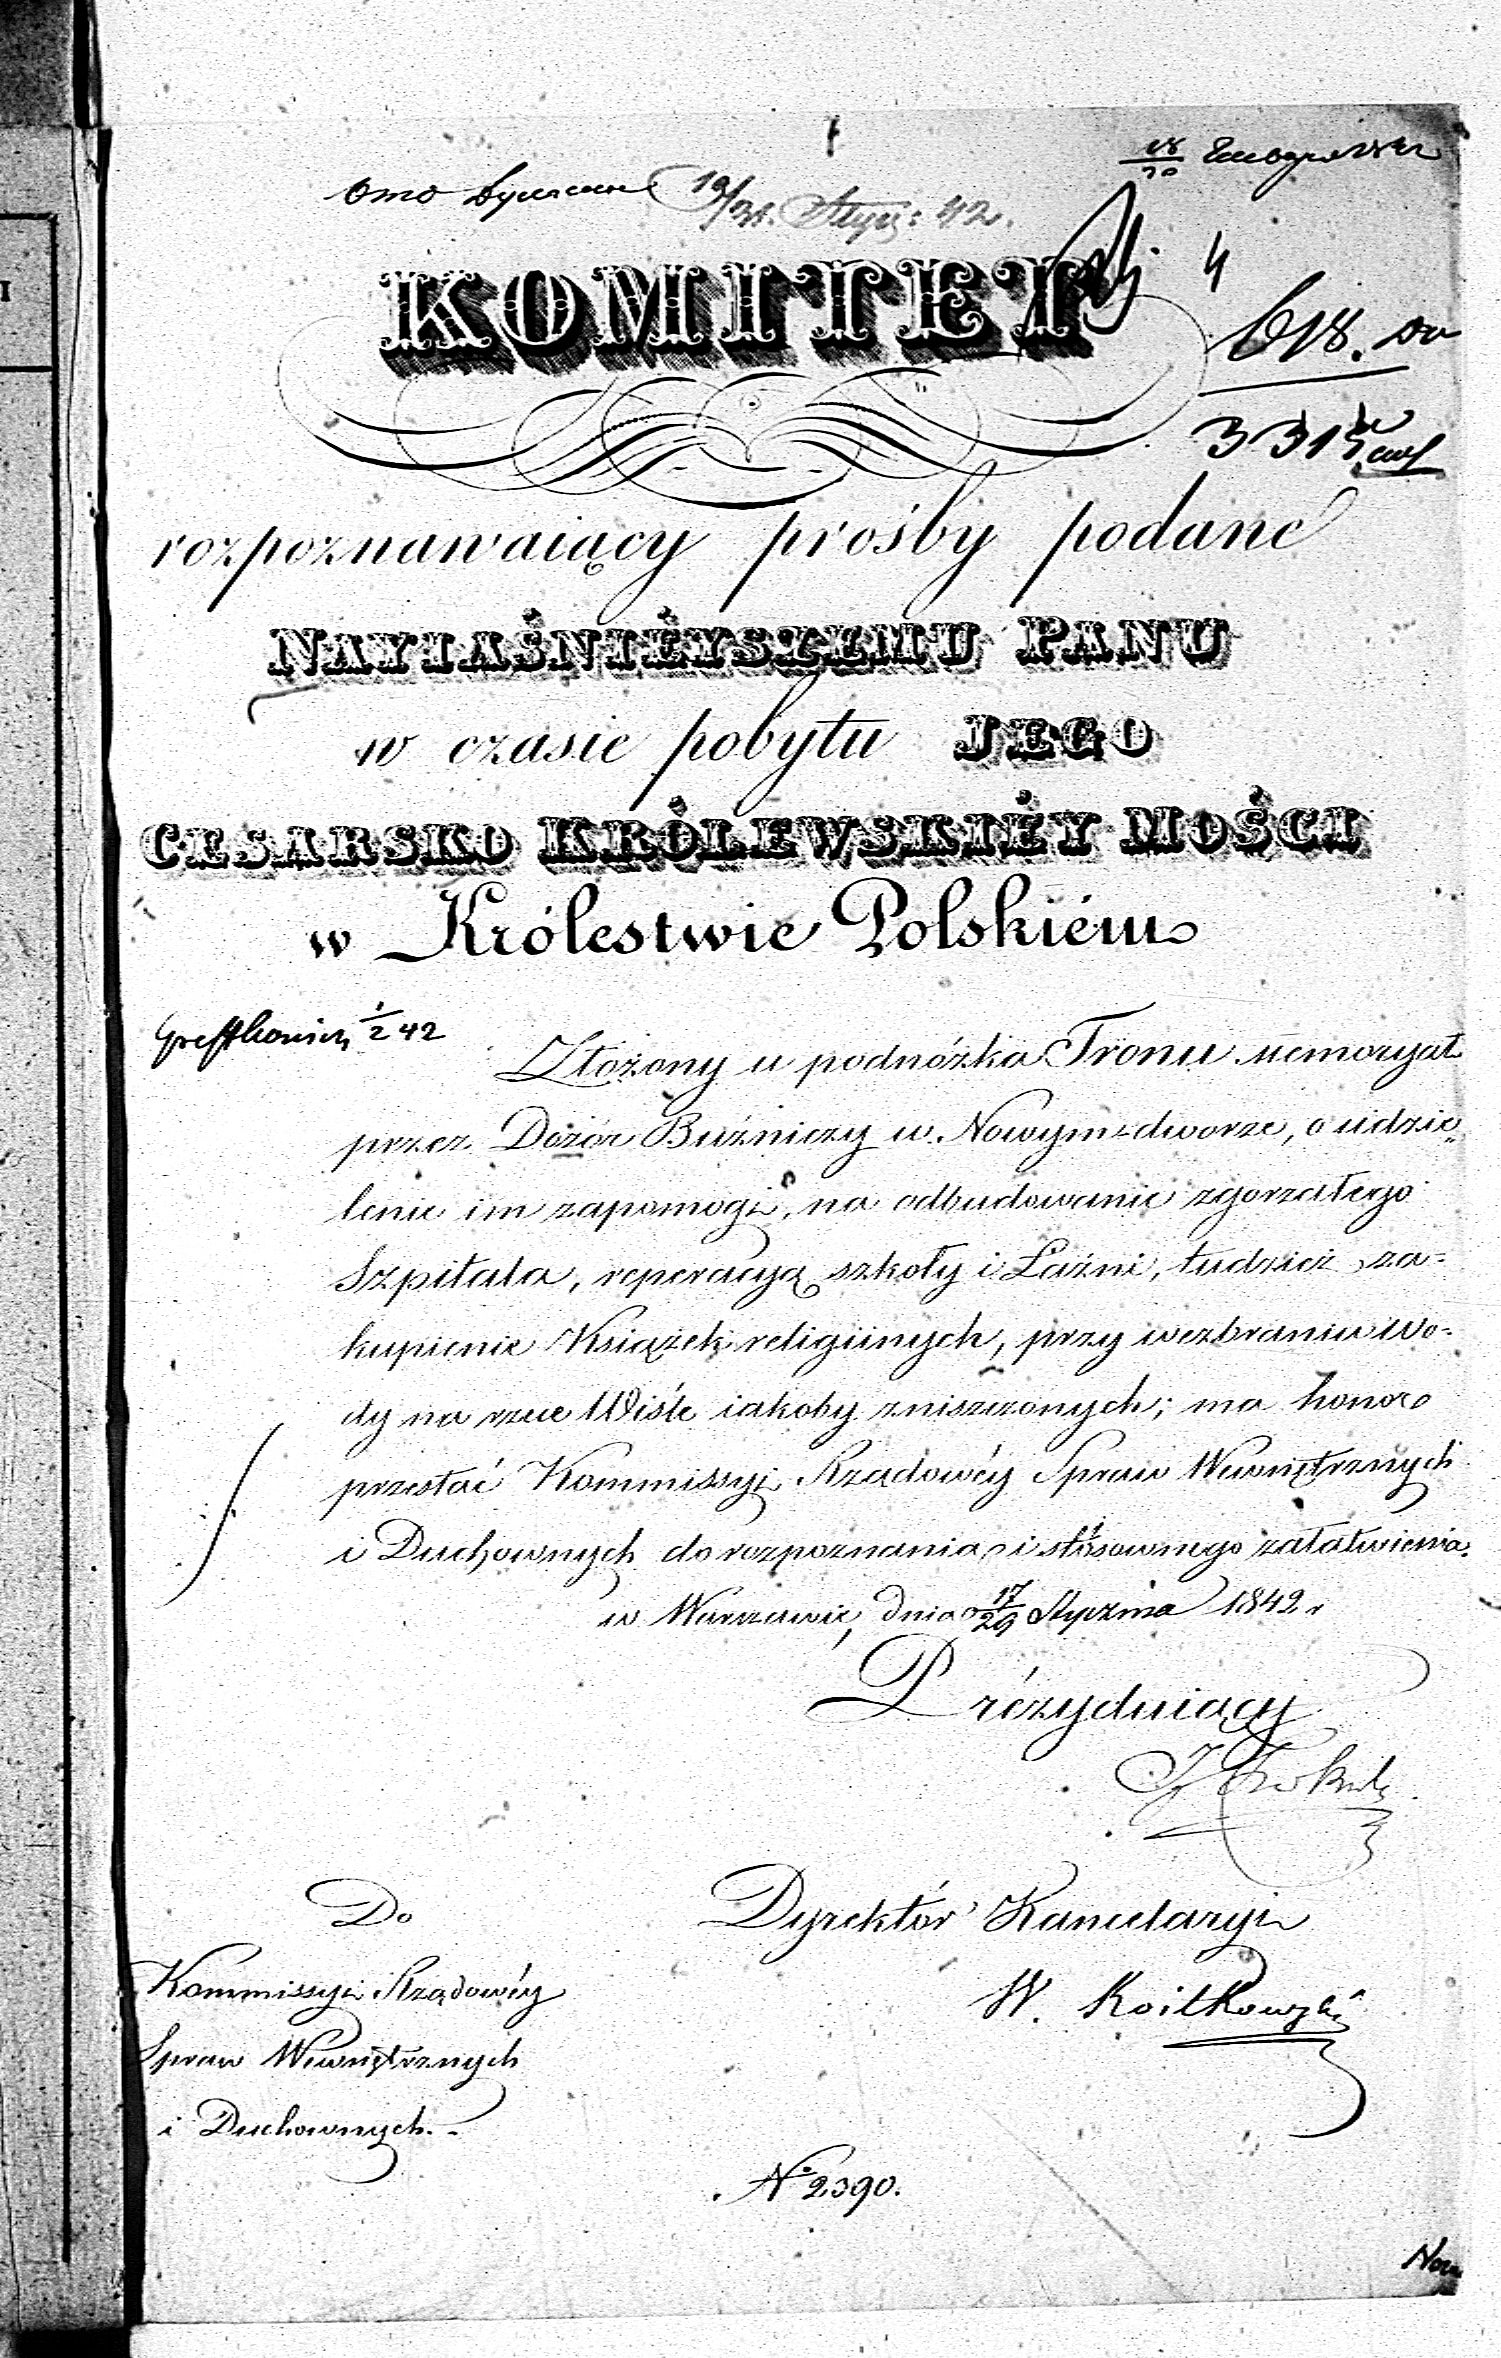 19/31. Stycz: 42.
4
KOMITET
618.
331
rozpoznawaiący prośby podane
NAYIAŚNIÉYSZEMU PANU
w czasie pobytu JEGO
CESARSKO KRÓLEWSKIÉY MOŚCI
w Królestwie Polskiém
1/2 42
Złożony u podnóżka Tronu memoryał
przez Dozór Bużniczy w Nowym-dworze, o udzie„
lenie im zapomogi, na odbudowanie zgorzałego
Szpitala, reperacyą szkoły i Łaźni, tudzież za-
kupienie Książek religiinych, przy wezbraniu wo-
dy na rzece Wiśle iakoby zniszczonych; ma honor
przesłać Kommissyi Rządowéy Spraw Wewnętrznych
i Duchownych do rozpoznania i stósownego załatwienia.
w Warszawie, dnia 17/29 Stycznia 1842 r
Prézyduiący
Dyrektór Kancelaryi
Do
Kommissyi Rządowéy
Spraw Wewnętrznych
i Duchownych.-
W.
No 2390.